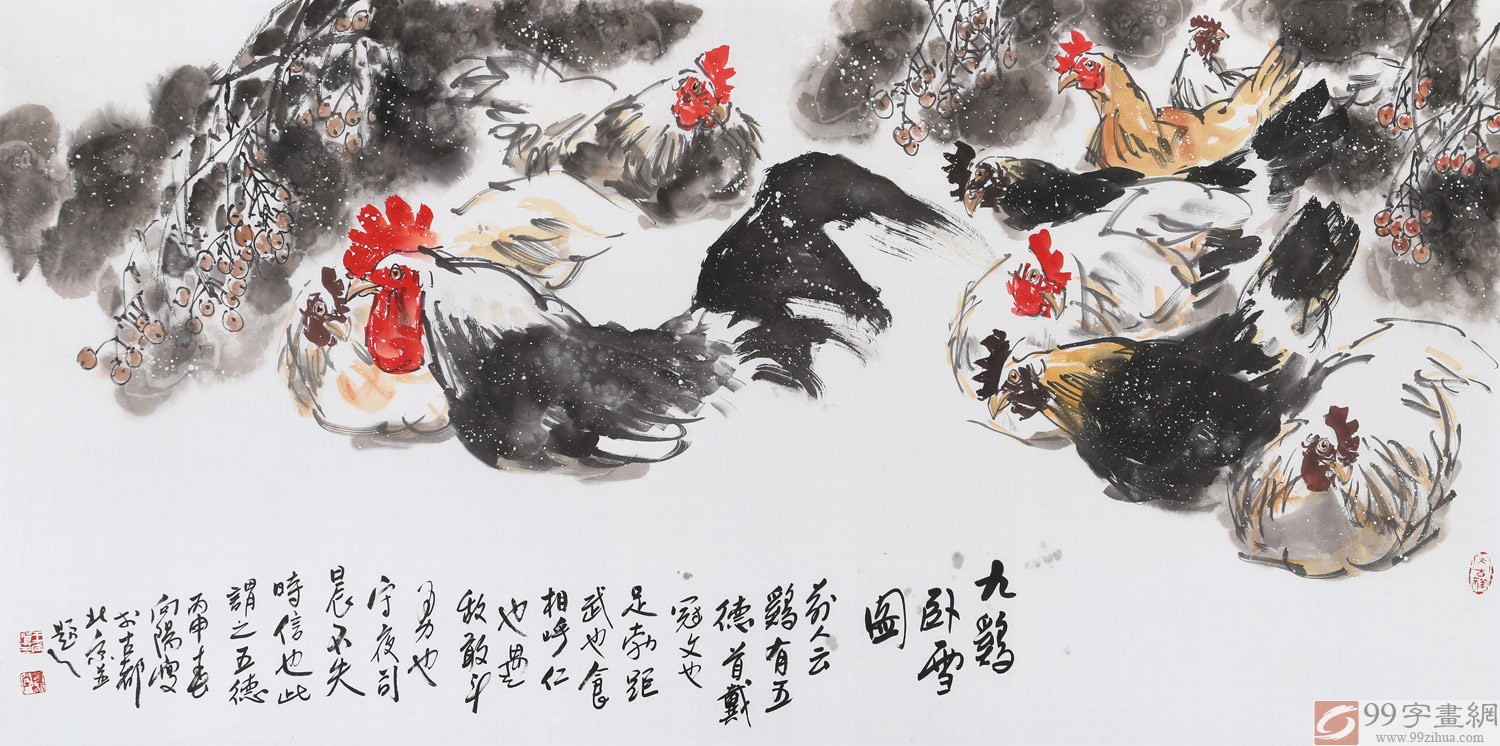 九鷄
卧雪
圖
前人云
鷄有五
德首戴
冠文也
足勃距
武也食
相呼仁
也遇
敌敢斗
勇也
守夜司
晨不失
時信也此
謂之五德
丙申春
向陽叟
於古都
北京並
題
大吉祥
99字畫網
www.99zihua.com